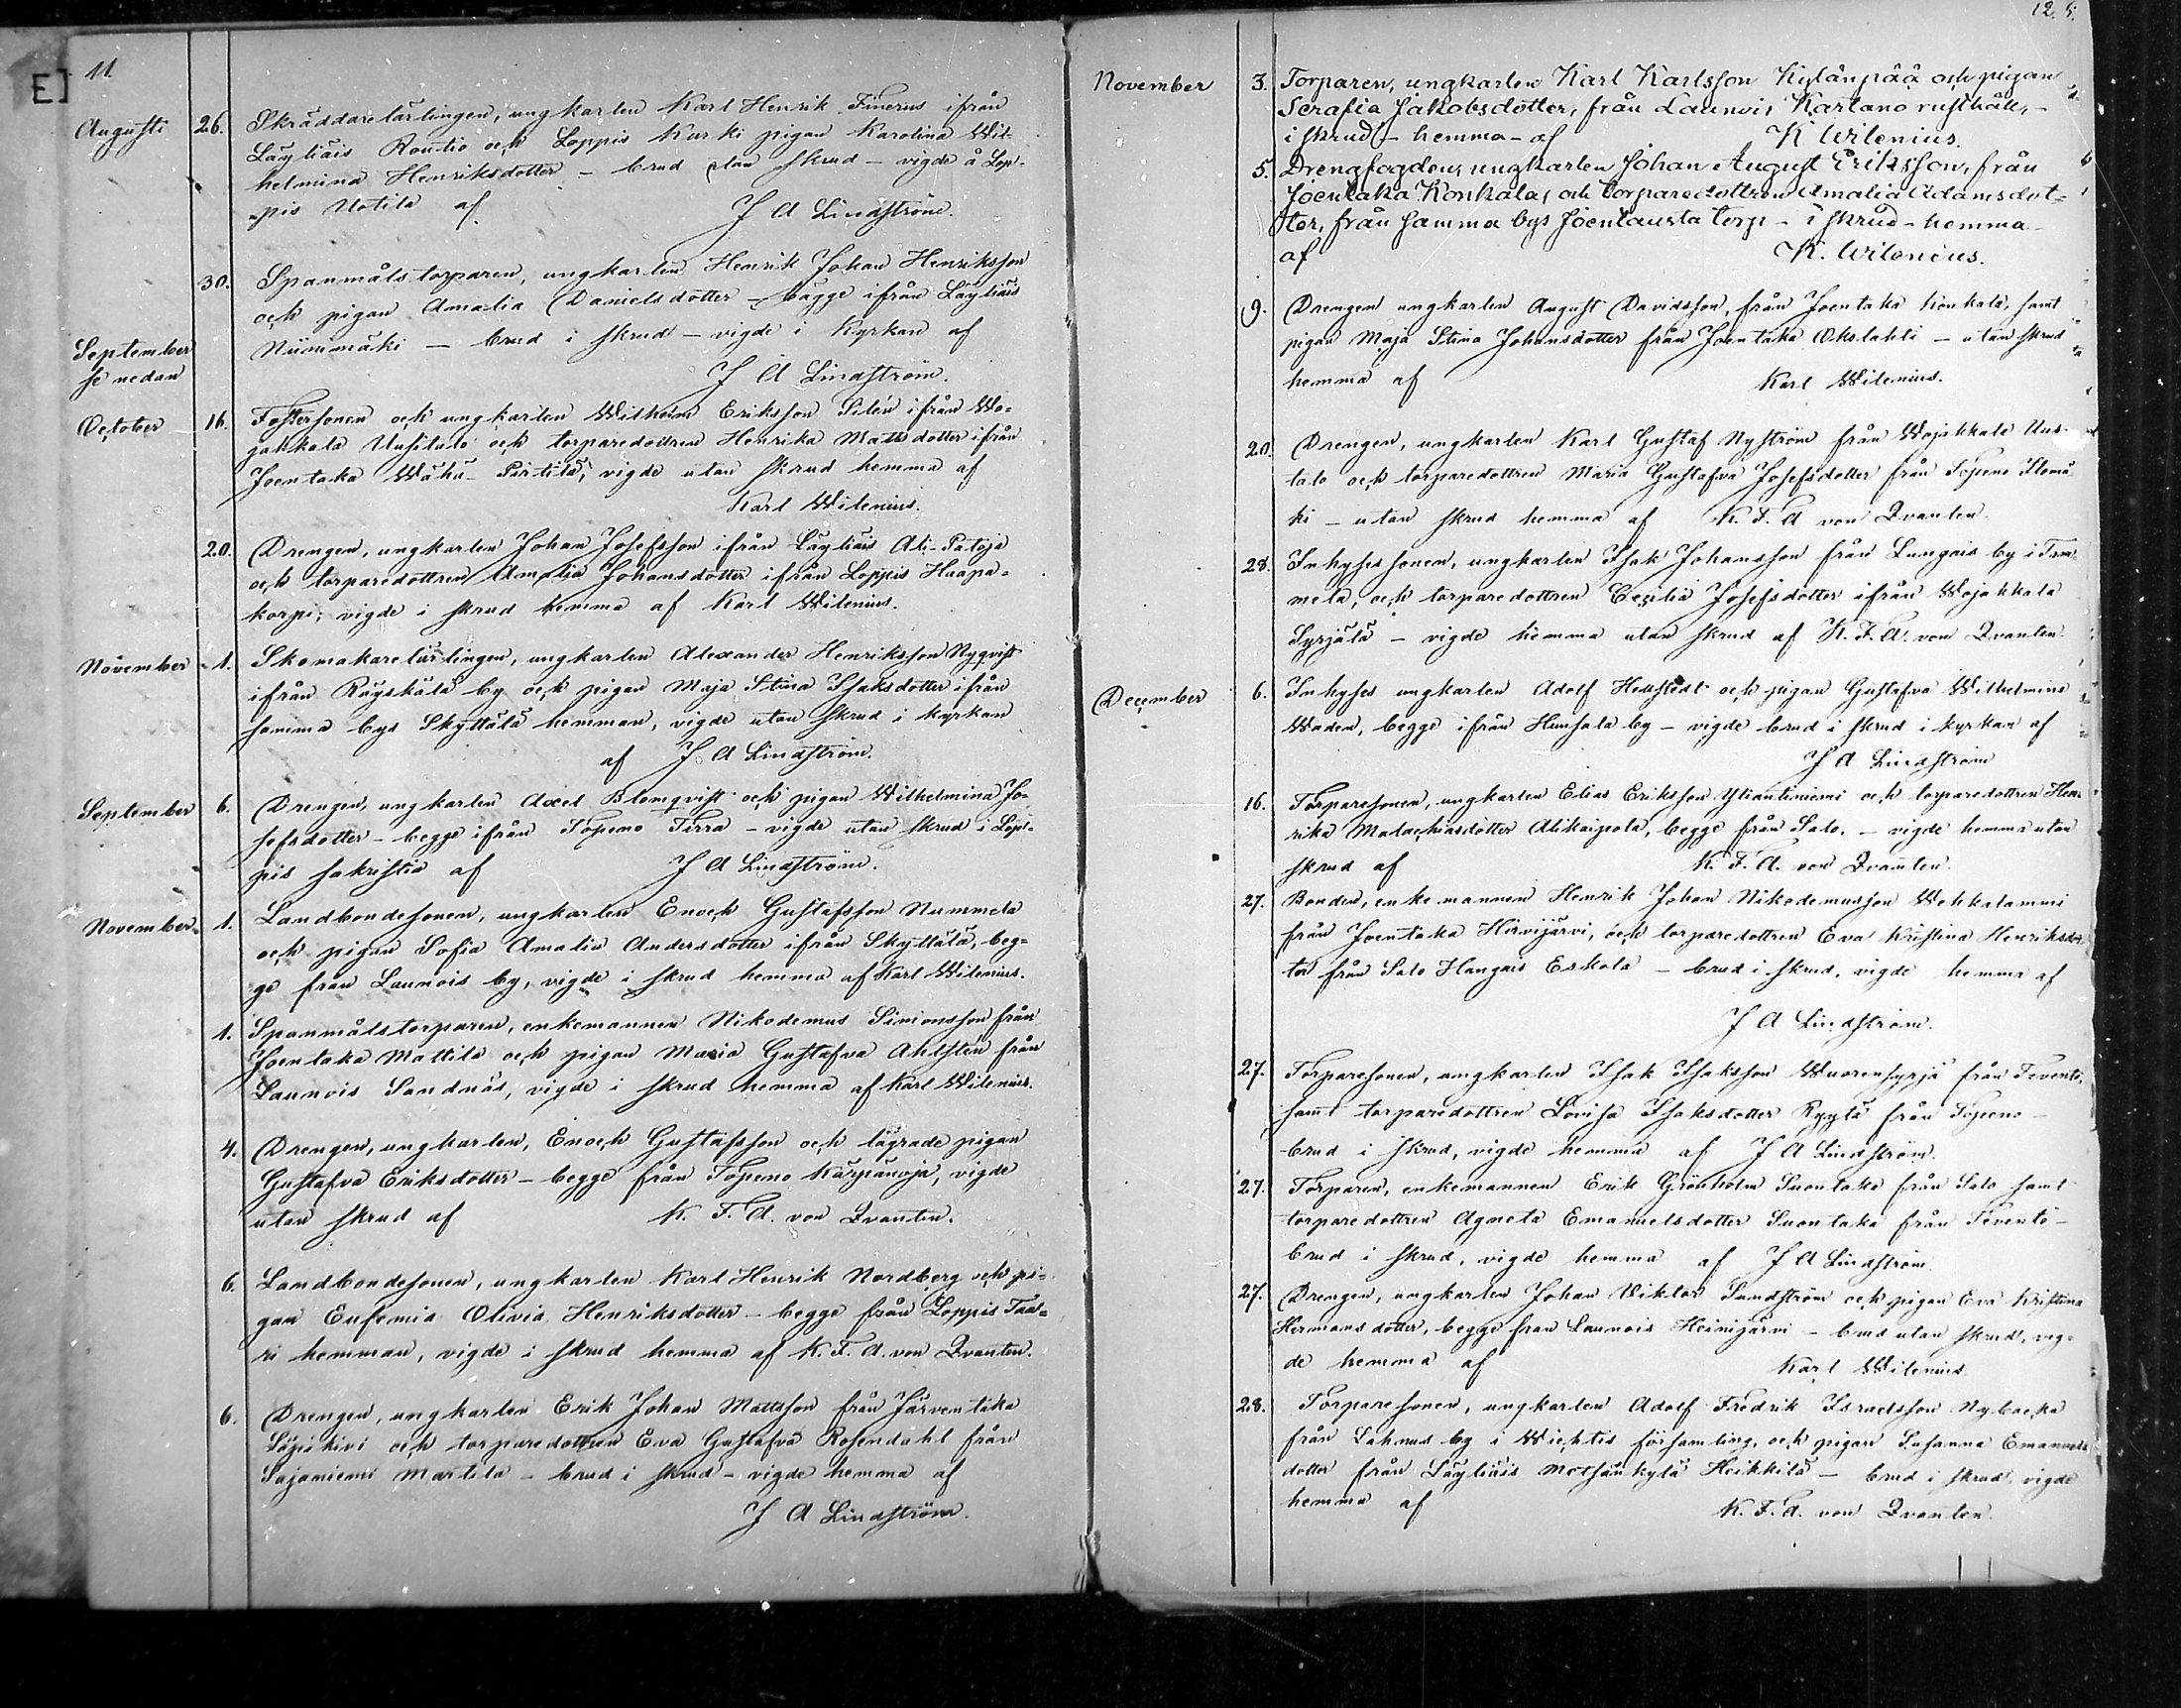 E]
11.
Augusti 26. Skräddarelärlingen, ungkarlen Karl Henrik Finerus ifrån
Läyliäis Routio och Loppis Kurki pigan Karolina Wil-
helmina Henriksdotter - brud utan skrud - vigde å Lop-
pis Uotila af J A Lindström.
30. Spanmålstorparen, ungkarlen Henrik Johan Henriksson
och pigan Amalia Danielsdotter - bägge ifrån Läyliäis
Niinimäki - brud i skrud - vigde i Kyrkan af
September
se nedan
J A Lindström.
October 16. Fostersonen och ungkarlen Wilhelm Eriksson Silén ifrån Wo-
jakkala Uusitalo och torparedottren Henrika Mattsdotter ifrån
Joentaka Wähä-Pirtilä, vigde utan skrud hemma af
Karl Wilenius.
20. Drengen, ungkarlen Johan Josefsson ifrån Läyliäis Ali-Patoja
och torparedottren Amalia Johansdotter ifrån Loppis Haapa-
korpi; vigde i skrud hemma af Karl Wilenius.
November 1. Skomakarelärlingen, ungkarlen Alexander Henriksson Nyqvist
ifrån Räyskälä by och pigan Maja Stina Isaksdotter ifrån
samma bys Skyttälä hemman, vigde utan skrud i kyrkan
af J. A Lindström.
September 6. Drengen, ungkarlen Axel Blomqvist och pigan Wilhelmina Jo-
sefsdotter - begge ifrån Topeno Tirra - vigde utan skrud i Lop-
pis sakristia af J A Lindström.
November 1. Landbondesonen, ungkarlen Enoch Gustafsson Nummela
och pigan Sofia Amalia Andersdotter ifrån Skyttälä, beg-
ge från Launois by, vigde i skrud hemma af Karl Wilenius.
1. Spanmålstorparen, enkemannen Nikodemus Simonsson från
Joentaka Mattila och pigan Maria Gustafva Ahlstén från
Launois Sandnäs, vigde i skrud hemma af Karl Wilenius.
4. Drengen, ungkarlen, Enoch Gustafsson och lägrade pigan
Gustafva Eriksdotter - begge från Topeno Kärpänoja, vigde
utan skrud af K. F. A. von Qvanten.
6. Landbondesonen, ungkarlen Karl Henrik Nordberg och pi-
gan Eufemia Olivia Henriksdotter - begge från Loppis Tau-
ri hemman, vigde i skrud hemma af K. F. A. von Qvanten.
6. Drengen, ungkarlen Erik Johan Mattsson från Järventaka
Läpikivi och torparedottren Eva Gustafva Rosendahl från
Sajaniemi Martila - brud i skrud - vigde hemma af
J A Lindström.
12.
November 3. Torparen, ungkarlen Karl Karlsson Kylänpää och pigan
Serafia Jakobsdotter, från Launois Kartano rusthåll, -
i skrud - hemma - af K Wilenius.
5. Drengfogden, ungkarlen Johan August Eriksson, från
Joentaka Konkala, och torparedottren Amalia Adamsdot-
ter, från samma bys Joentausta torp - i skrud - hemma -
af K. Wilenius.
9. Drengen ungkarlen August Davidsson, från Joentaka Konkala, samt
pigan Maja Stina Johansdotter från Joentaka Okslahti - utan skrud
hemma af Karl Wilenius.
20. Drengen, ungkarlen Karl Gustaf Nyström från Wojakkala Uusi-
talo och torparedottren Maria Gustafva Josefsdotter från Topeno Ilomä
ki - utan skrud hemma af K. F. A von Qvanten.
28. Inhysessonen, ungkarlen Isak Johansson från Lungais by i Tam-
mela, och torparedottren Cecilia Josefsdotter ifrån Wojakkala
Syrjälä - vigde hemma utan skrud af K. F. A. von Qvanten.
December 6. Inhyses ungkarlen Adolf Hellstedt och pigan Gustafva Wilhelmina
Wadén, begge ifrån Hunsala by - vigde brud i skrud i kyrkan af
J A Lindström
16. Torparesonen, ungkarlen Elias Eriksson Yliantiniemi och torparedottren Hen-
rika Malachiasdotter Alikaipola, begge från Salo, - vigde hemma utan
skrud af K. F. A. von Qvanten.
27. Bonden, enkemannen Henrik Johan Nikodemusson Wehkalammi
från Joentaka Hirvijärvi, och torparedottren Eva Kristina Henriksdot
ter från Salo Hangais Eskola - brud i skrud, vigde hemma af
J A Lindström.
27. Torparesonen, ungkarlen Isak Isaksson Wuorensyrjä från Tevento,
samt torparedottren Lovisa Isaksdotter Ryytä från Topeno -
brud i skrud, vigde hemma af J A Lindström.
27. Torparen, enkemannen Erik Grönholm Suontaka från Salo samt
torparedottren Agneta Emanuelsdotter Suontaka från Tevento -
brud i skrud, vigde hemma af J A Lindström.
27. Drengen, ungkarlen Johan Viktor Sundström och pigan Eva Kristina
Hermansdotter, begge från Launois Heinijärvi - brud utan skrud, vig-
de hemma af Karl Wilenius.
28. Torparesonen, ungkarlen Adolf Fredrik Israelsson Nybacka
från Lahnus by i Wichtis församling, och pigan Susanna Emanuels
dotter från Läyliäis Metsänkylä Heikkilä - brud i skrud, vigde
hemma af K. F. A. von Qvanten.